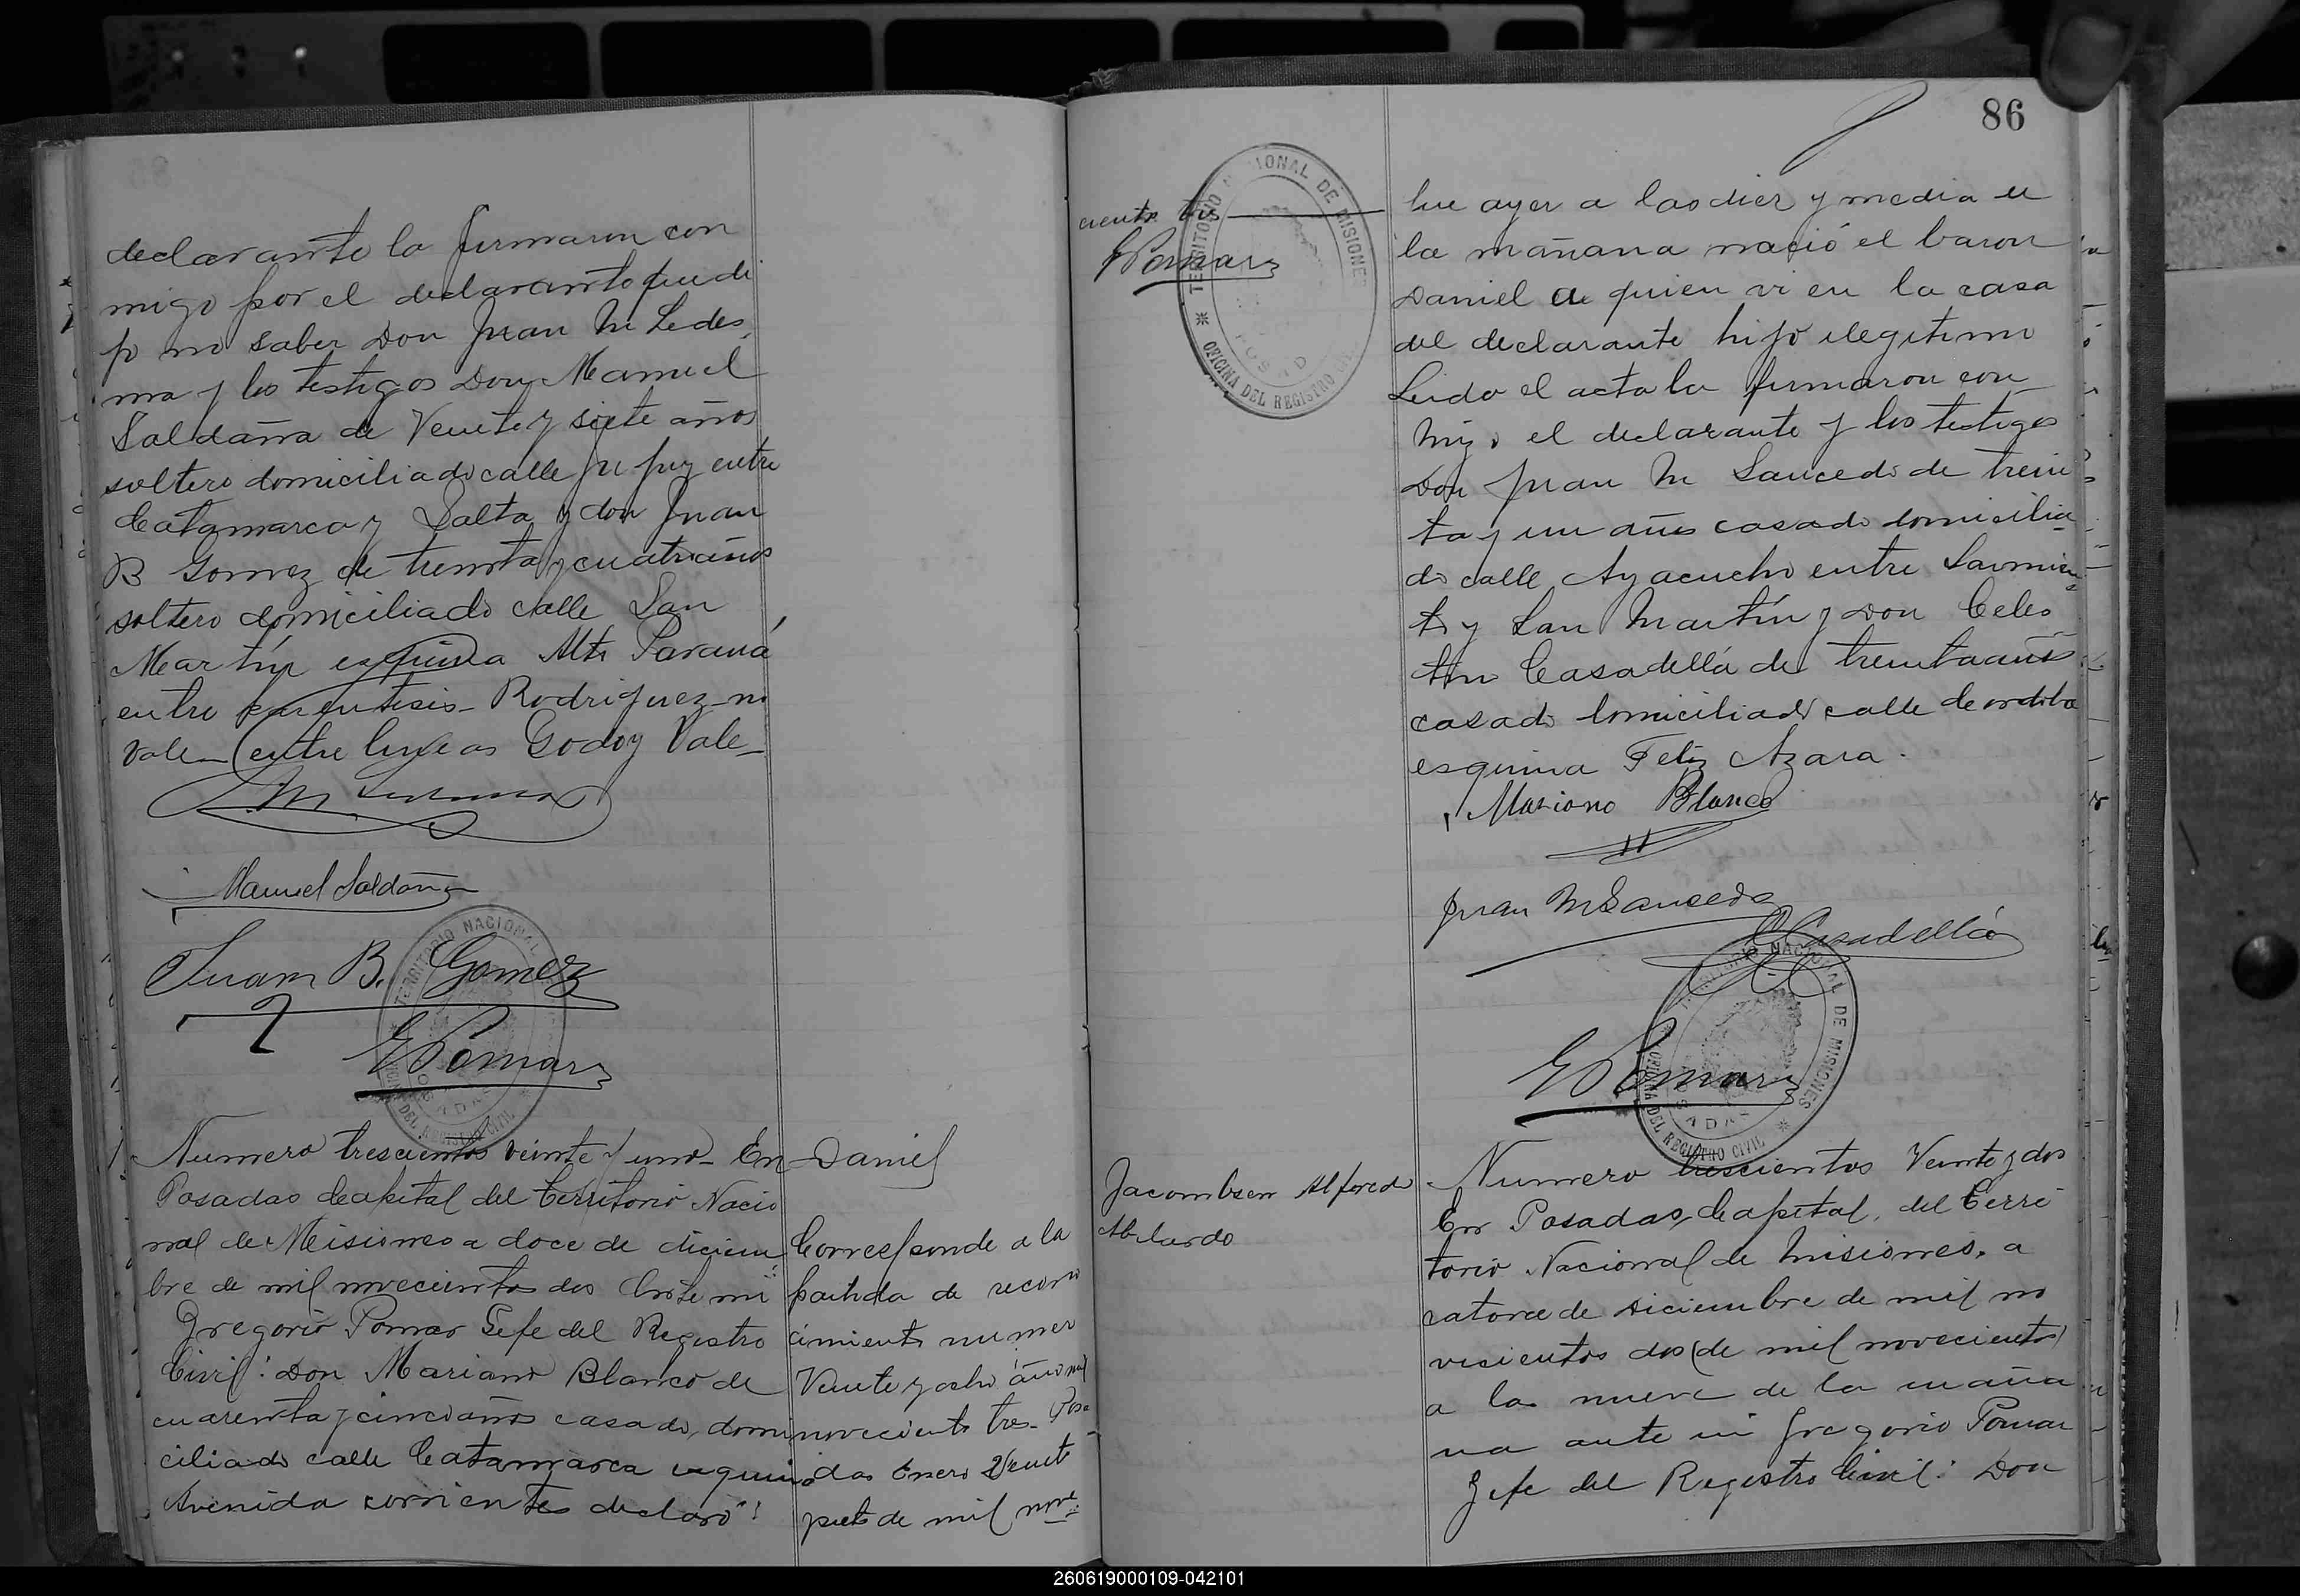 declarante la firmaron con
migo por el declarante que di
jo no saber Don Juan M Ledes
ma y los testigos Don Manuel
Saldaña de Veinte y siete años
soltero domiciliado calle Ju juy entre
Catamarca y Salta y don Juan
B Gomez de treinta y cuatro años
soltero domiciliado calle San
Martín esquina Alto Paraná
entre parentesis - Rodriguez - no
vale - (entre lineas Godoy Vale -
Manuel Saldaña
Juan B. Gomez
TERRITORIO NACIONAL
OFICINA DEL REGISTRO CIVIL
POSADAS
G Pomar
Numero trescientos veinte y uno - En
Posadas Capital del Territorio Nacio
nal de Misiones a doce de diciem
bre de mil novecientos dos Ante mi
Gregorio Pomar Gefe del Registro
Civil: Don Mariano Blanco de
cuarenta y cinco años casado, domi
ciliado calle Catamarca esquina
Avenida corrientes declaró:
Daniel
Corresponde a la
partida de recono
cimiento numer
Veinte y ocho año mil
noveciento tres - Posa
das Enero Veinte
siete de mil nove
86
cientos tres
G Pomar
TERRITORIO NACIONAL DE MISIONES
OFICINA DEL REGISTRO CIVIL
POSADAS
que ayer a las diez y media de
la mañana nació el baron
Daniel a quien vi en la casa
del declarante hijo ilegitimo
Leido el acta la firmaron con
migo el declarante y los testigos
Don Juan M Saucedo de trein
ta y un años casado domicilia
do calle Ayacucho entre Sarmien
to y San Martín y Don Celes
tino Casadellá de treinta años
casado domiciliado calle Cordoba
esquina Feliz Azara.
Mariano Blanco
Juan M Saucedo
C Casadellá
TERRITORIO NACIONAL DE MISIONES
OFICINA DEL REGISTRO CIVIL
POSADAS
G Pomar
Jacombsen Alfredo
Abelardo
Numero trescientos Veinte y dos
En Posadas, Capital, del Terri
torio Nacional de Misiones, a
catorce de Diciembre de mil no
vecientos dos (de mil novecientos)
a las nueve de la maña
na ante mi Gregorio Pomar
Gefe del Registro Civil: Don
260619000109-042101